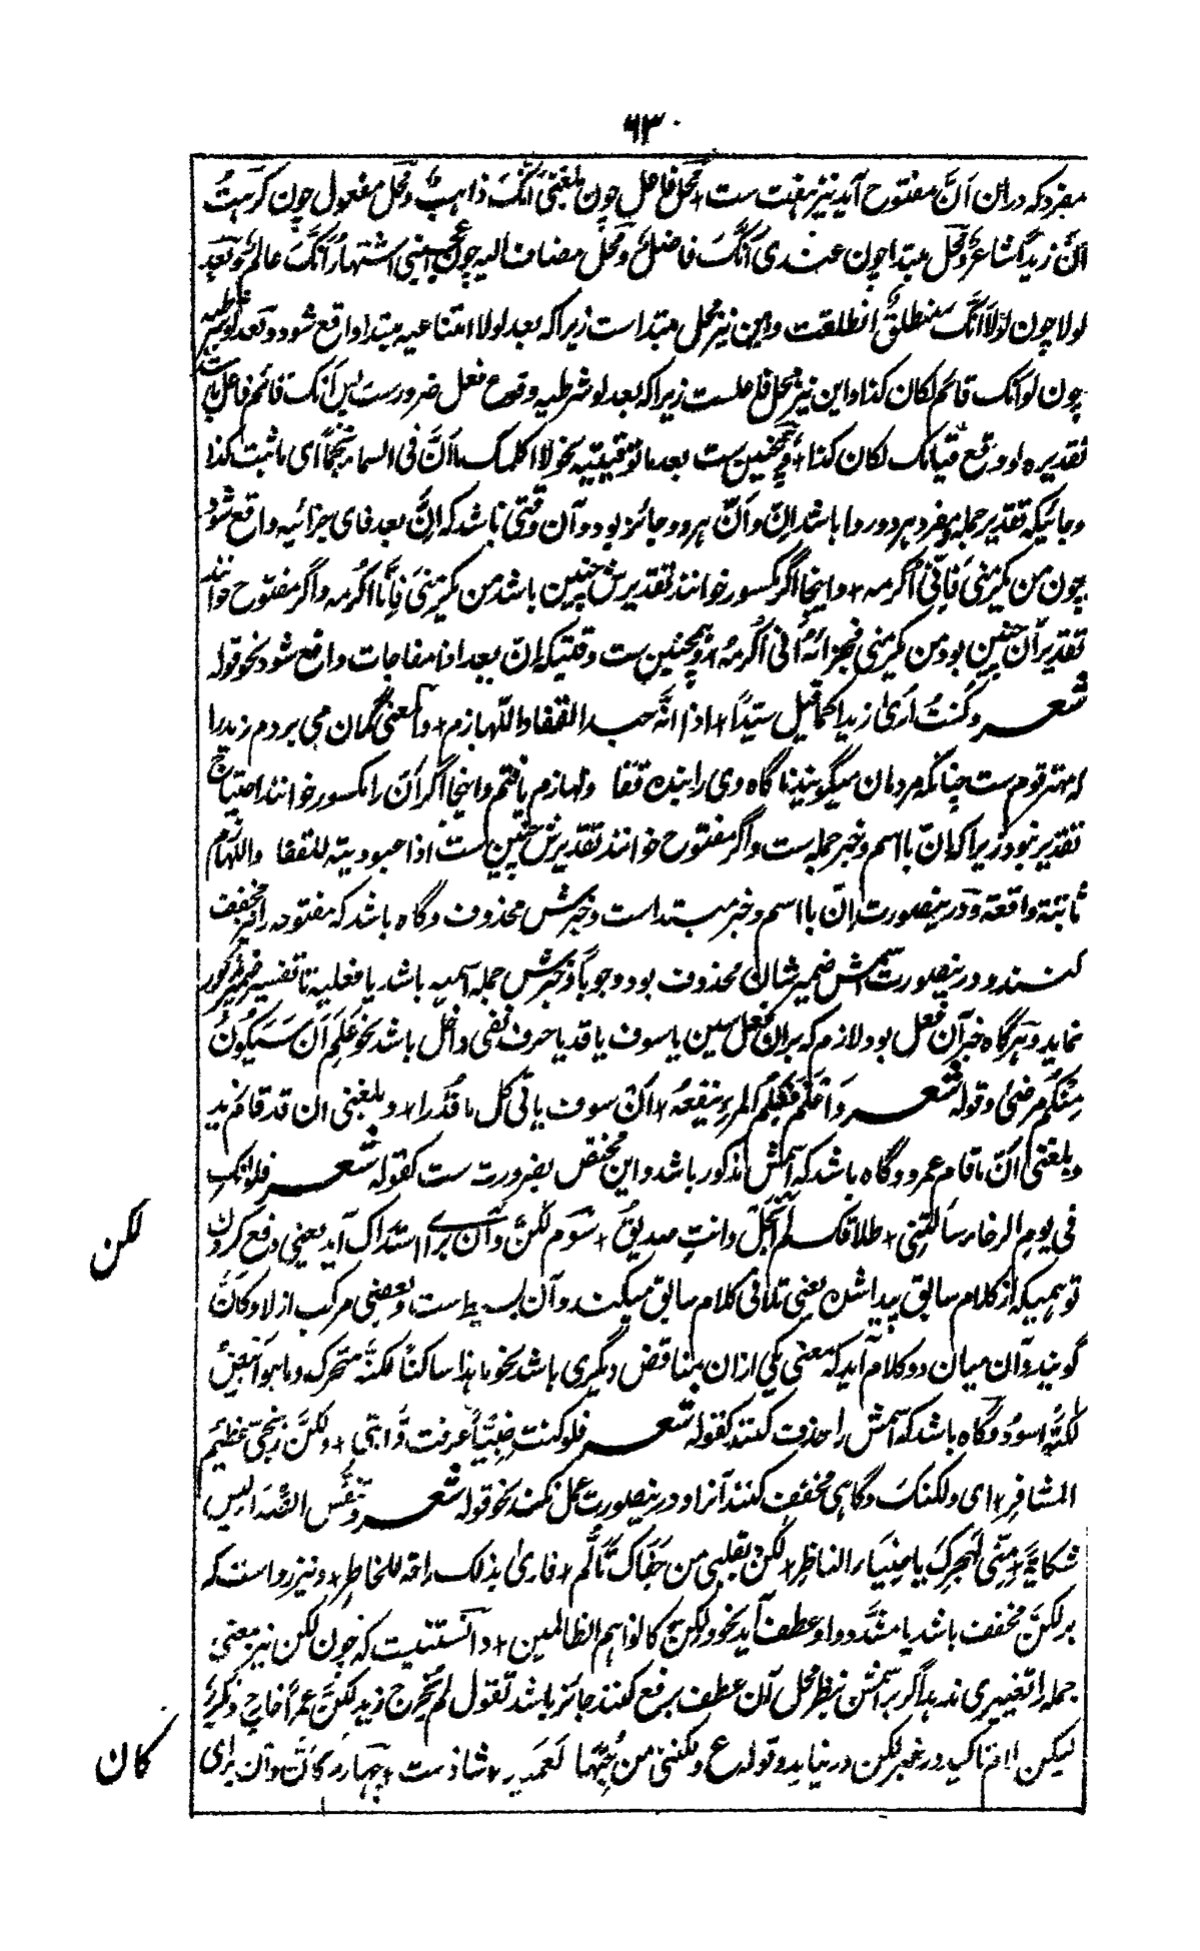 ٦٣
مفرد که دران اَنَّ مفتوح آید نیز هفت ست + محل فاعل چون بلغنی اَنَّکَ ذاهبٌ و محل مفعول چون کرهتُ
اَنَّ زیداً شاعرٌ و محل مبتدا چون عندی اَنَّکَ فاضلٌ و محل مضاف الیه چون عجبنی اشتهارُ اَنَّکَ عالمٌ و بعد
لولا چون لولا اَنَّکَ منطلقٌ انطلقت و این نیز محل مبتداست زیرا که بعد لولا امتناعیه مبتدا واقع شود و بعد لو شرطیه
چون لو انک قائم لکان کذا و این نیز محل فاعلست زیرا که بعد لو شرطیه وقوع فعل ضرورست پس اَنک قائم فاعل باشد
تقدیره لو وقع قیامک لکان کذا + و همچنین ست بعد ما توقیتیه نحو لا اکلمک ما اَنَّ فی السماء نجماً ای ما ثبت کذا
و جائیکه تقدیر جمله و مفرد هر دو روا باشد اِنّ و اَنّ هر دو جائز بود و آن وقتی باشد که اِنَّ بعد فای جزائیه واقع شود
چون من یکرمنی فَاِنّی اُکرمه + و اینجا اگر مکسور خوانند تقدیرش چنین باشد من یکرمنی فاَنَا اکرمه و اگر مفتوح خوانند
تقدیر آن چنین بود من یکرمنی فجزائهُ اَنی اُکرمهُ + و همچنین ست وقتیکه اِنّ بعد اذا مفاجات واقع شود نحو قوله
شعر و کنتُ اَریٰ زیداً کما قیل سیّداً + اذا انَّه عبد القفا و اللهازم + و معنی گمان می بردم زید را
که مهتر قوم ست چنانکه مردمان میگویند ناگاه وی را بنده قفا و لهازم یافتم و اینجا اگر اَنّ را مکسور خوانند احتیاج
تقدیر نبود زیرا که اِنّ با اسم و خبر جمله ست و اگر مفتوح خوانند تقدیرش چنین ست اذا عبودیته للقفا و اللهازم
ثابتة واقعة و درینصورت اَنّ با اسم و خبر مبتداست و خبرش محذوف و گاه باشد که مفتوحه را نیز مخفف
کنند و درینصورت اسمش ضمیر شان محذوف بود وجوباً و خبرش جمله اسمیه باشد یا فعلیه تا تفسیر ضمیر مذکور
نماید و هرگاه خبر آن فعل بود لازم که بران فعل سین یا سوف یا قد یا حرف نفی داخل باشد نحو عَلِمَ اَن سَیَکُونُ
مِنکُم مَرضیٰ و قوله شعر وَ اعلَم فَعِلمُ المرءِ ینفعهُ + اَن سوف یاتی کل ما قُدّرا + و بلغنی ان قد قام زید
و بلغنی اَن ما قام عمرو و گاه باشد که اسمش مذکور باشد و این مختص بضرورت ست کقوله شعر فلو انکِ
فی یوم الرخاء سألتِنی + طلاقک لم اَبخل و انتِ صدیقُ + سوم لکنَّ و آن برای استدراک آید یعنی دفع کردن
توهمیکه از کلام سابق پیدا شده یعنی تلافی کلام سابق میکند و آن بسیط است و بعضی مرکب از لا و کانَّ
گویند و آن میان دو کلام آید که معنی یکی ازان مناقض دیگری باشد نحو ما هذا ساکناً لکنَّه متحرک و ما هو ابیضُ
لکنَّه اسودُ و گاه باشد که اسمش را حذف کنند کقوله شعر فلو کنت ضبّیاً عرفت قرابتی + ولکنَّ زنجیّ عظیم
المشافر + ای ولکنک و گاهی مخفف کنند آنرا و درینصورت عمل نکند نحو قوله شعر
شکایةً + مِنّی لهجرکَ یا ضیاء الناظر + لکن بقلبی من جفاک تألُّم + فاری بذلک راحة للخاطر + و نیز رواست که
بر لکنَّ مخفف باشد یا مشدد واو عطف آید نحو و لکن کانوا هم الظالمین + و دانستنیست که چون لکن نیز معنی
جمله را تغییری ندهد اگر بر اسمش بنظر محل آن عطف برفع کنند جائز باشد تقول لم یخرج زید لکنَّ عمراً خارج و بکرٌ
لیکن لام تاکید در خبر لکن در نیاید و قوله ع ولکنّنی من حُبّها لَعَمید + شاذست + چهارم کانَّ و آن برای
لکن
کان